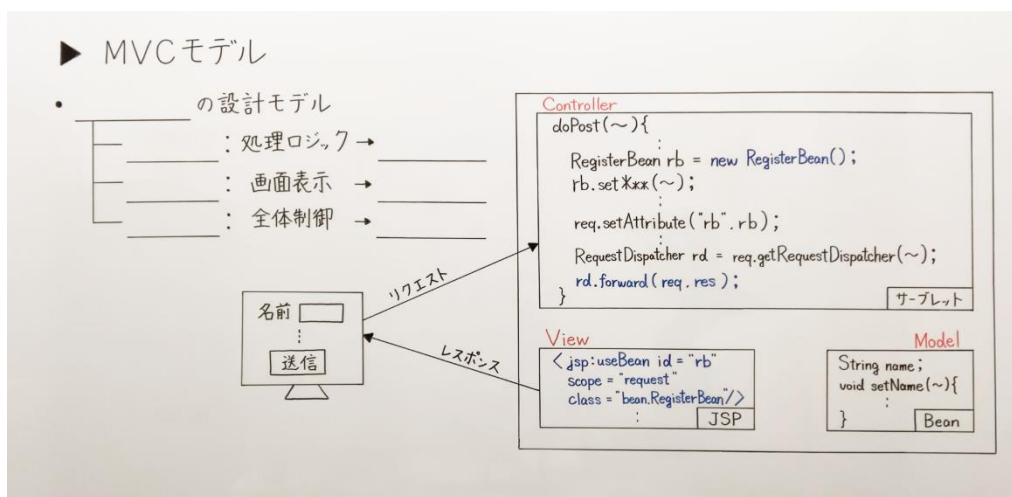 ▶ MVCモデル
・________の設計モデル
______：処理ロジック→______
______：画面表示→______
______：全体制御→______
名前
⋮
送信
リクエスト
レスポンス
Controller
doPost(～){
⋮
RegisterBean rb = new RegisterBean();
rb.set***(～);
⋮
req.setAttribute("rb".rb);
⋮
RequestDispatcher rd = req.getRequestDispatcher(～);
rd.forward(req.res);
}
サーブレット
View
<jsp:useBean id="rb"
scope="request"
class="bean.RegisterBean"/>
⋮
JSP
Model
String name;
void setName(～){
⋮
}
Bean